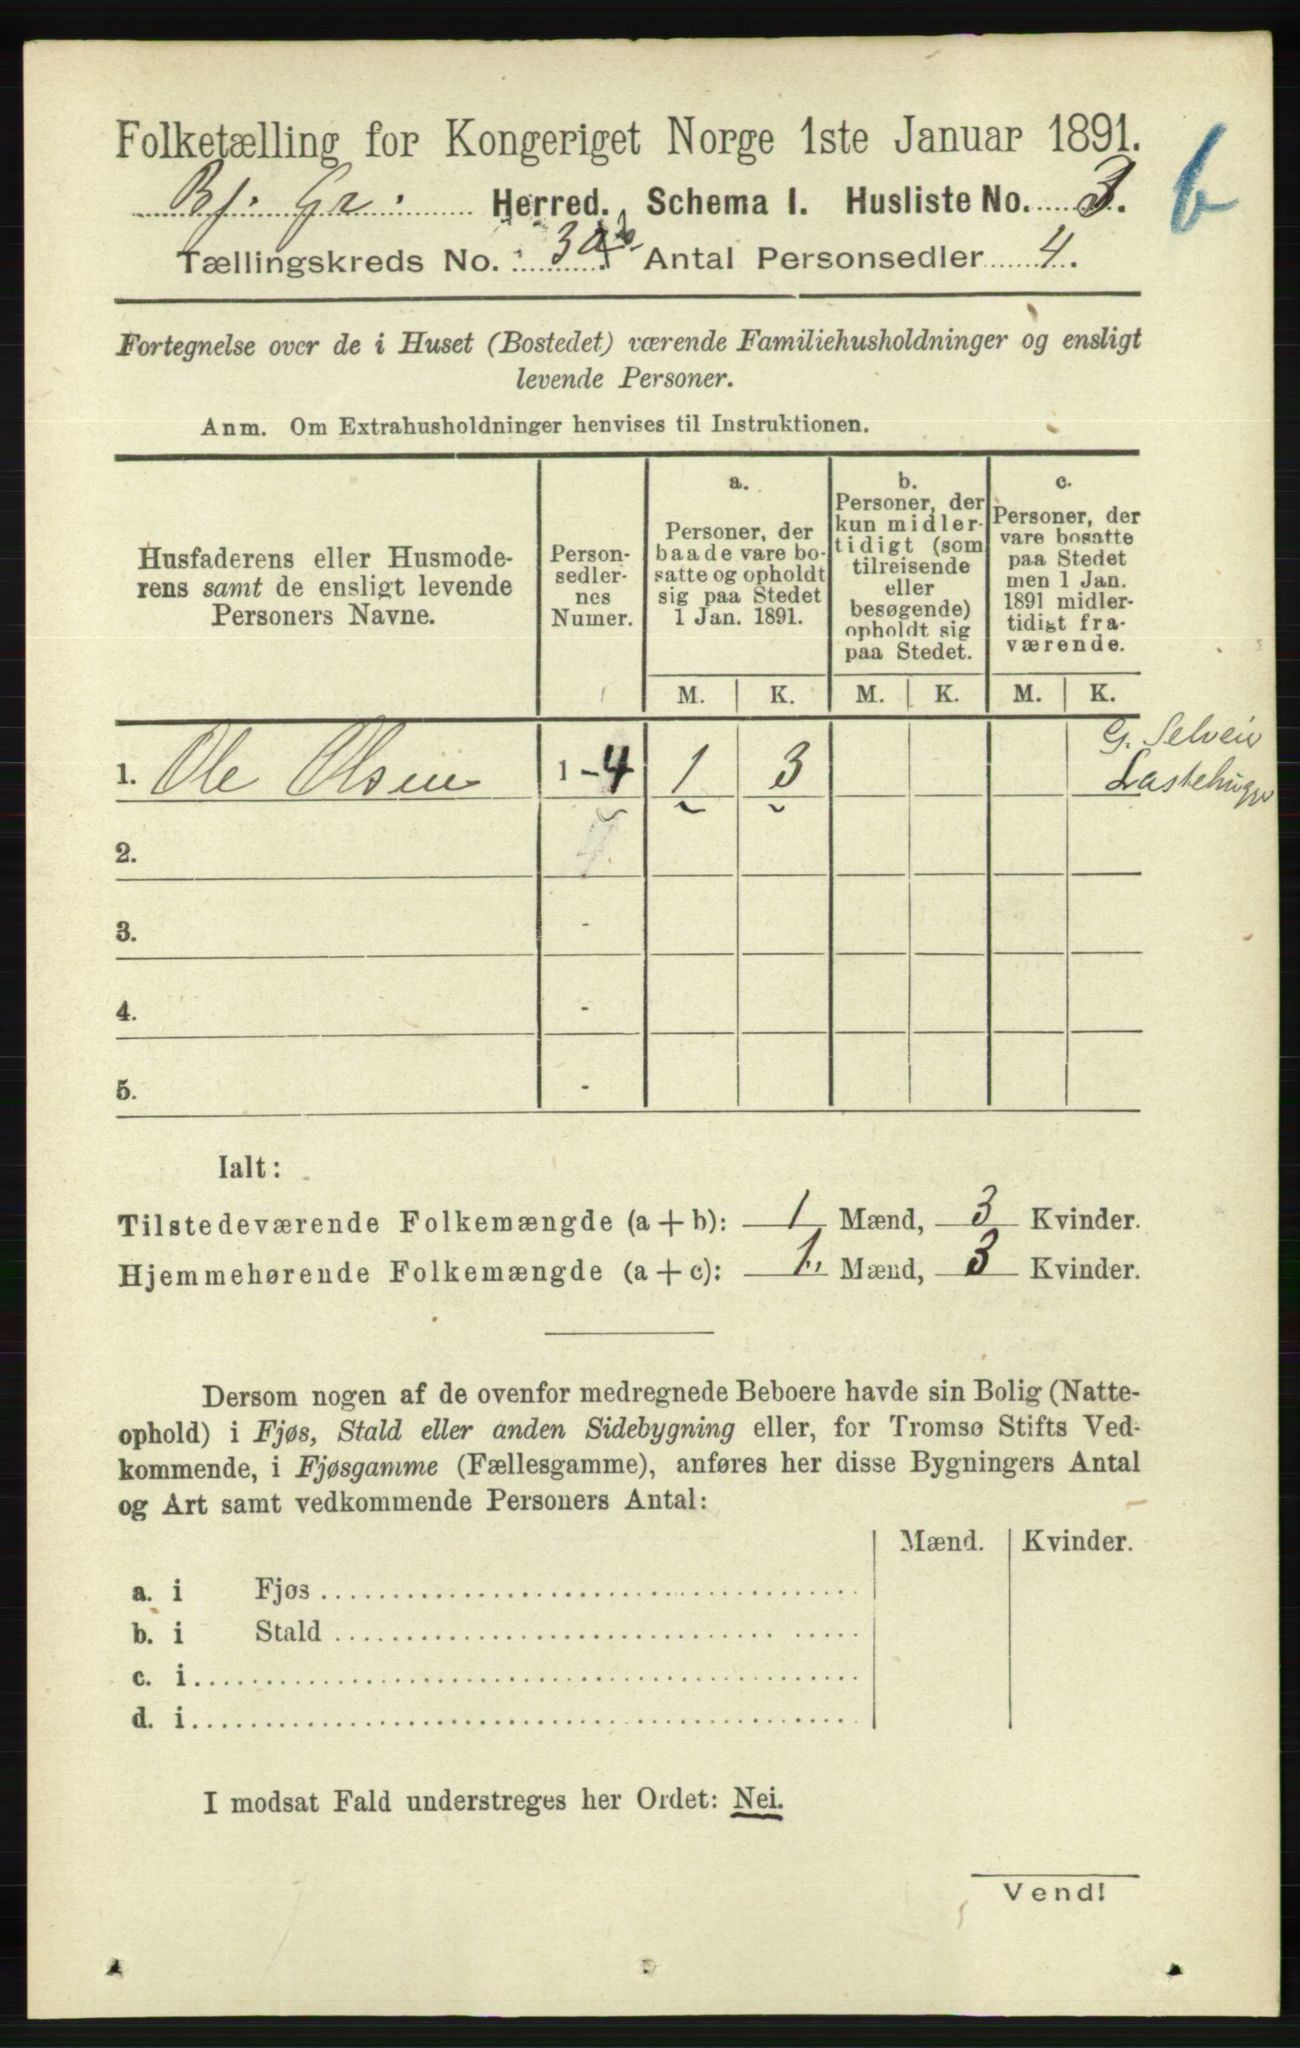 Folketælling for Kongeriget Norge 1ste Januar 1891.
Bj. Gr. Herred. Schema I. Husliste No. 3.
b
Tællingskreds No. 3a b. Antal Personsedler 4.
Fortegnelse over de i Huset (Bostedet) værende Familiehusholdninger og ensligt
levende Personer.
Anm. Om Extrahusholdninger henvises til Instruktionen.
Husfaderens eller Husmode-
rens samt de ensligt levende
Personers Navne.
Person-
sedler-
nes
Numer.
a.
Personer, der
baade vare bo-
satte og opholdt
sig paa Stedet
1 Jan. 1891.
b.
Personer, der
kun midler-
tidigt (som
tilreisende
eller
besøgende)
opholdt sig
paa Stedet.
c.
Personer, der
vare bosatte
paa Stedet
men 1 Jan.
1891 midler-
tidigt fra-
værende.
M. K. M. K. M. K.
1. Ole Olsen 1 - 4 1 3
G. Selveier
Lastehugger
2.
3. -
4. -
5. -
Ialt:
Tilstedeværende Folkemængde (a + b): 1 Mænd, 3 Kvinder.
Hjemmehørende Folkemængde (a + c): 1 Mænd, 3 Kvinder.
Dersom nogen af de ovenfor medregnede Beboere havde sin Bolig (Natte-
ophold) i Fjøs, Stald eller anden Sidebygning eller, for Tromsø Stifts Ved-
kommende, i Fjøsgamme (Fællesgamme), anføres her disse Bygningers Antal
og Art samt vedkommende Personers Antal:
Mænd. Kvinder.
a. i Fjøs
b. i Stald
c. i
d. i
I modsat Fald understreges her Ordet: Nei.
Vend!